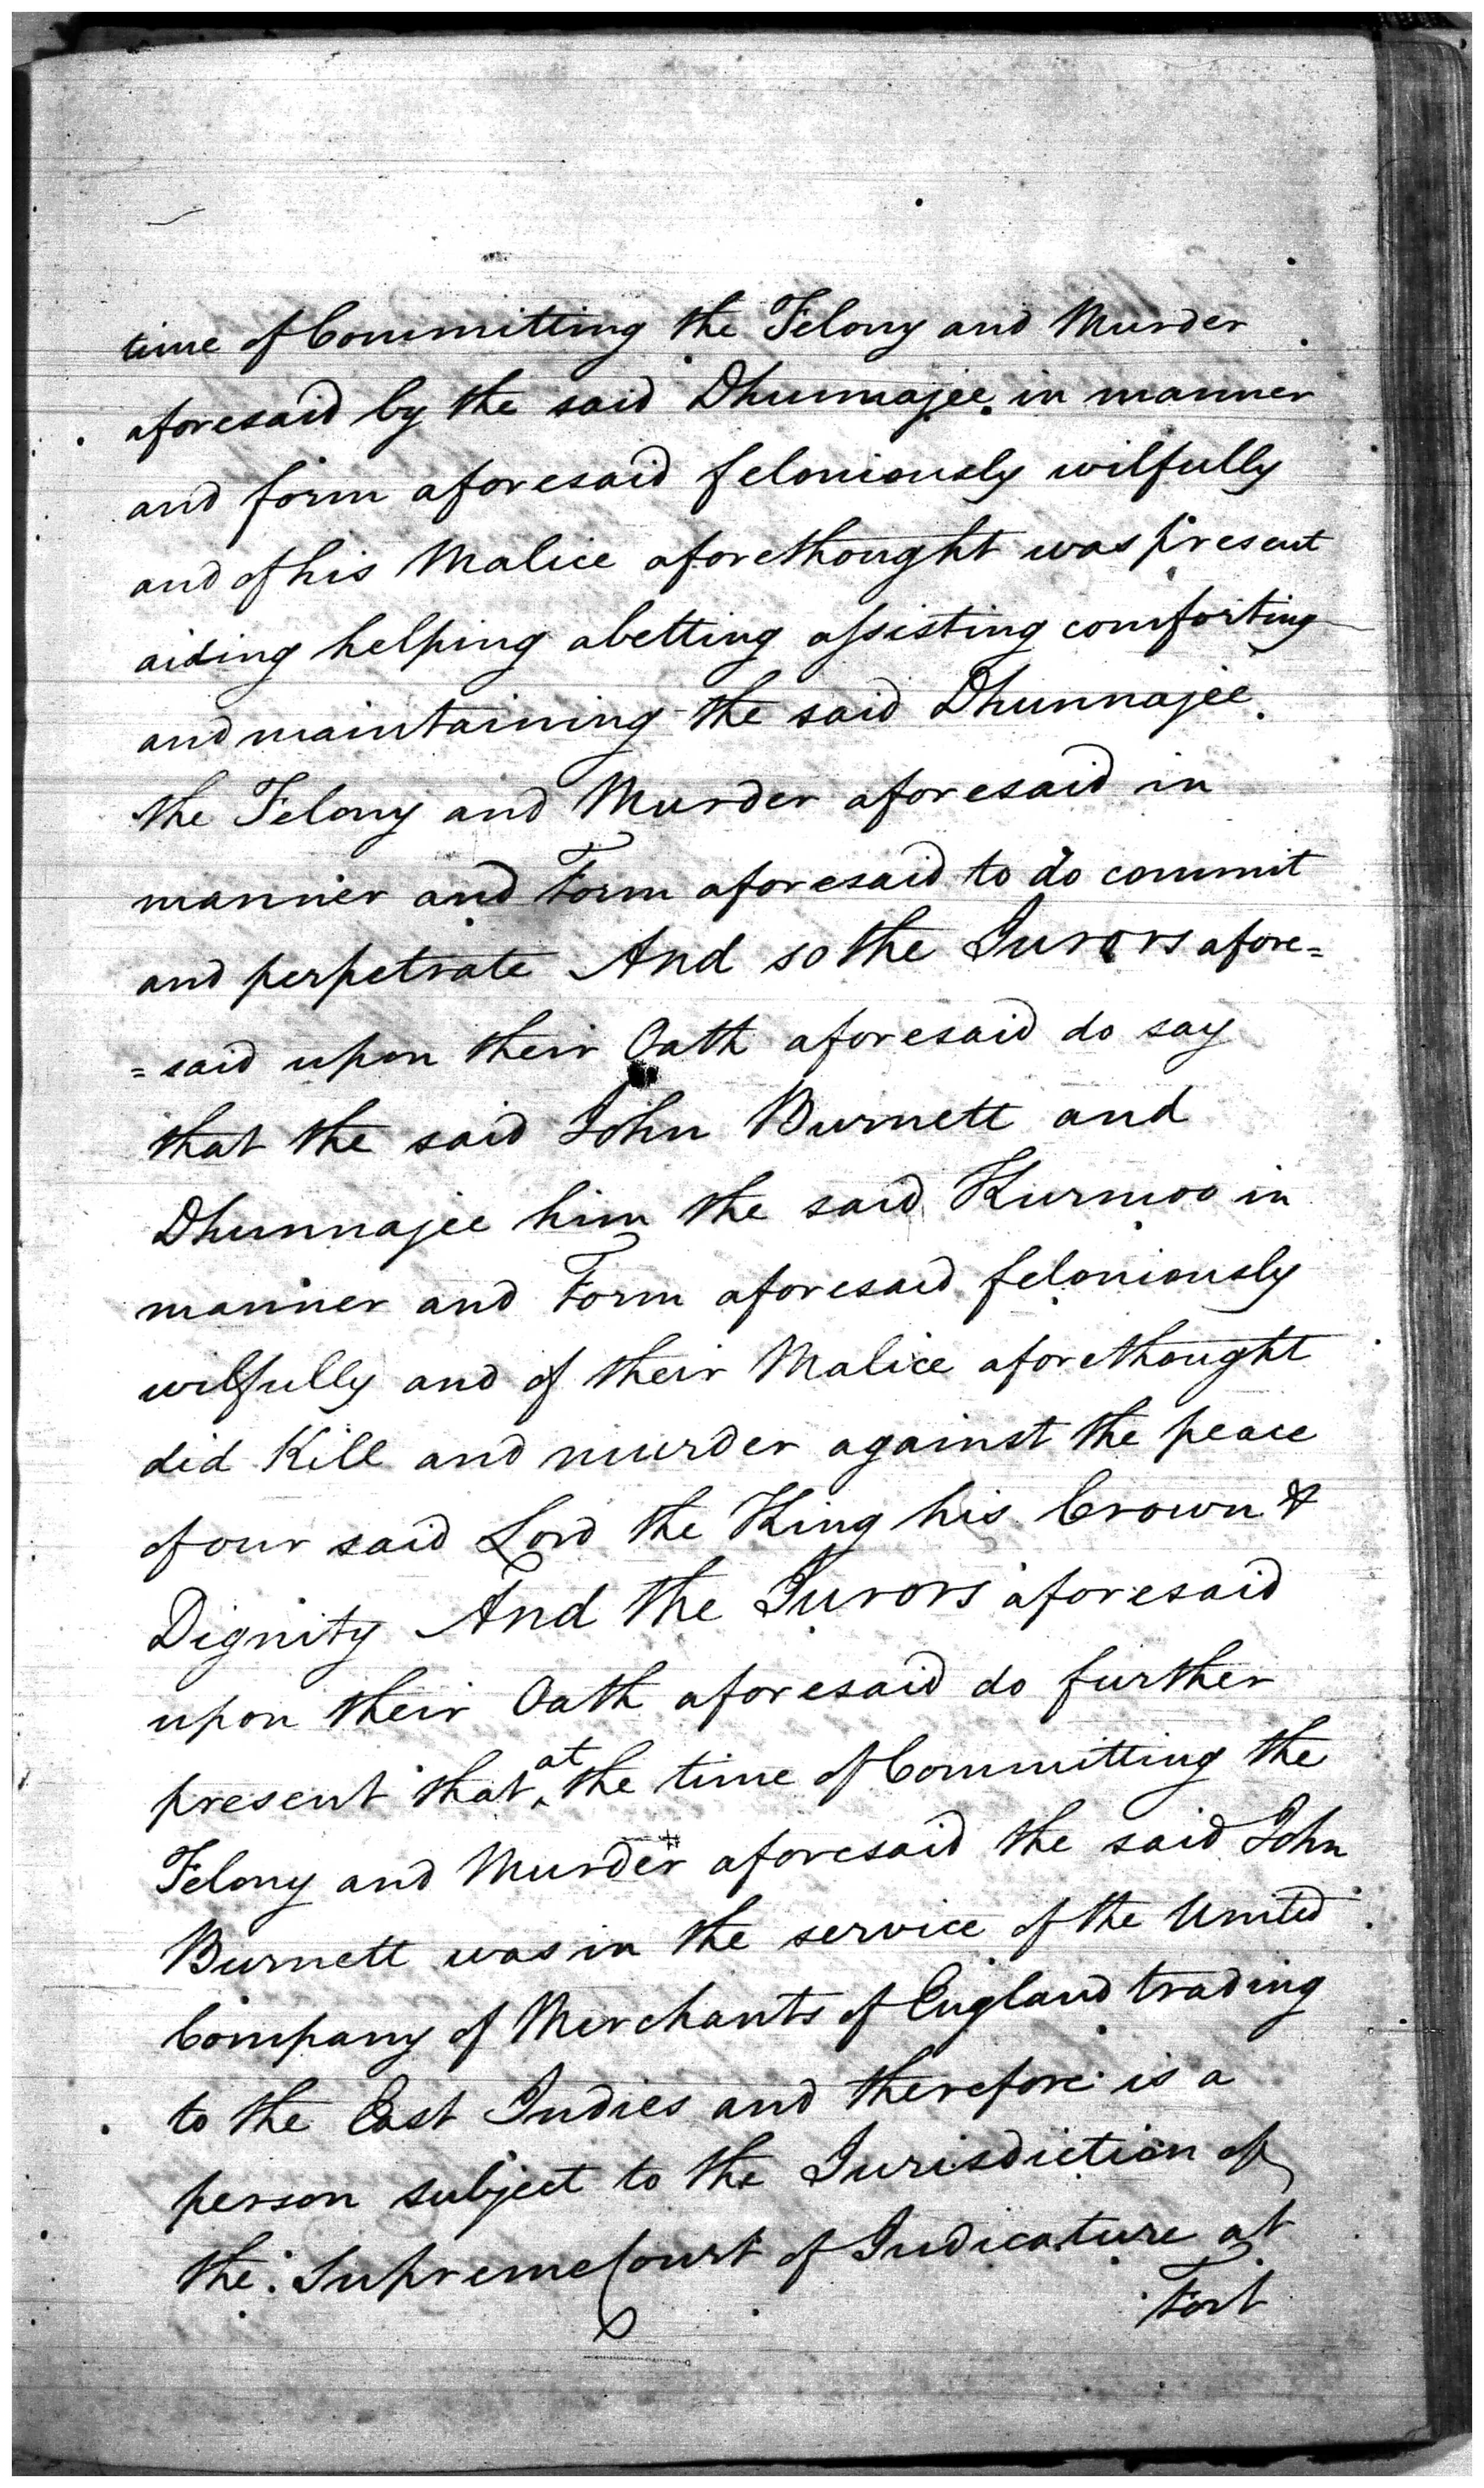 time of Committing the Felony and Murder
aforesaid by the said Dhunnajee in manner
and form aforesaid feloniously wilfully
and of his Malice aforethought was present
aiding helping abetting assisting comforting
and maintaining the said Dhunnajee
the Felony and Murder aforesaid in
manner and Form aforesaid to do commit
and perpetrate And so the Jurors afore=
=said upon their Oath aforesaid do say
that the said John Burnett and
Dhunnajee him the said Kurmoo in
manner and Form aforesaid feloniously
wilfully and of their Malice aforethought
did Kill and murder against the peace
of our said Lord the King his Crown &
Dignity And the Jurors aforesaid
upon their Oath aforesaid do further
present that at the time of Committing the
Felony and Murder aforesaid the said John
Burnett was in the service of the United
Company of Merchants of England trading
to the East Indies and therefore is a
person subject to the Jurisdiction of
the Supreme Court of Judicature at
Fort